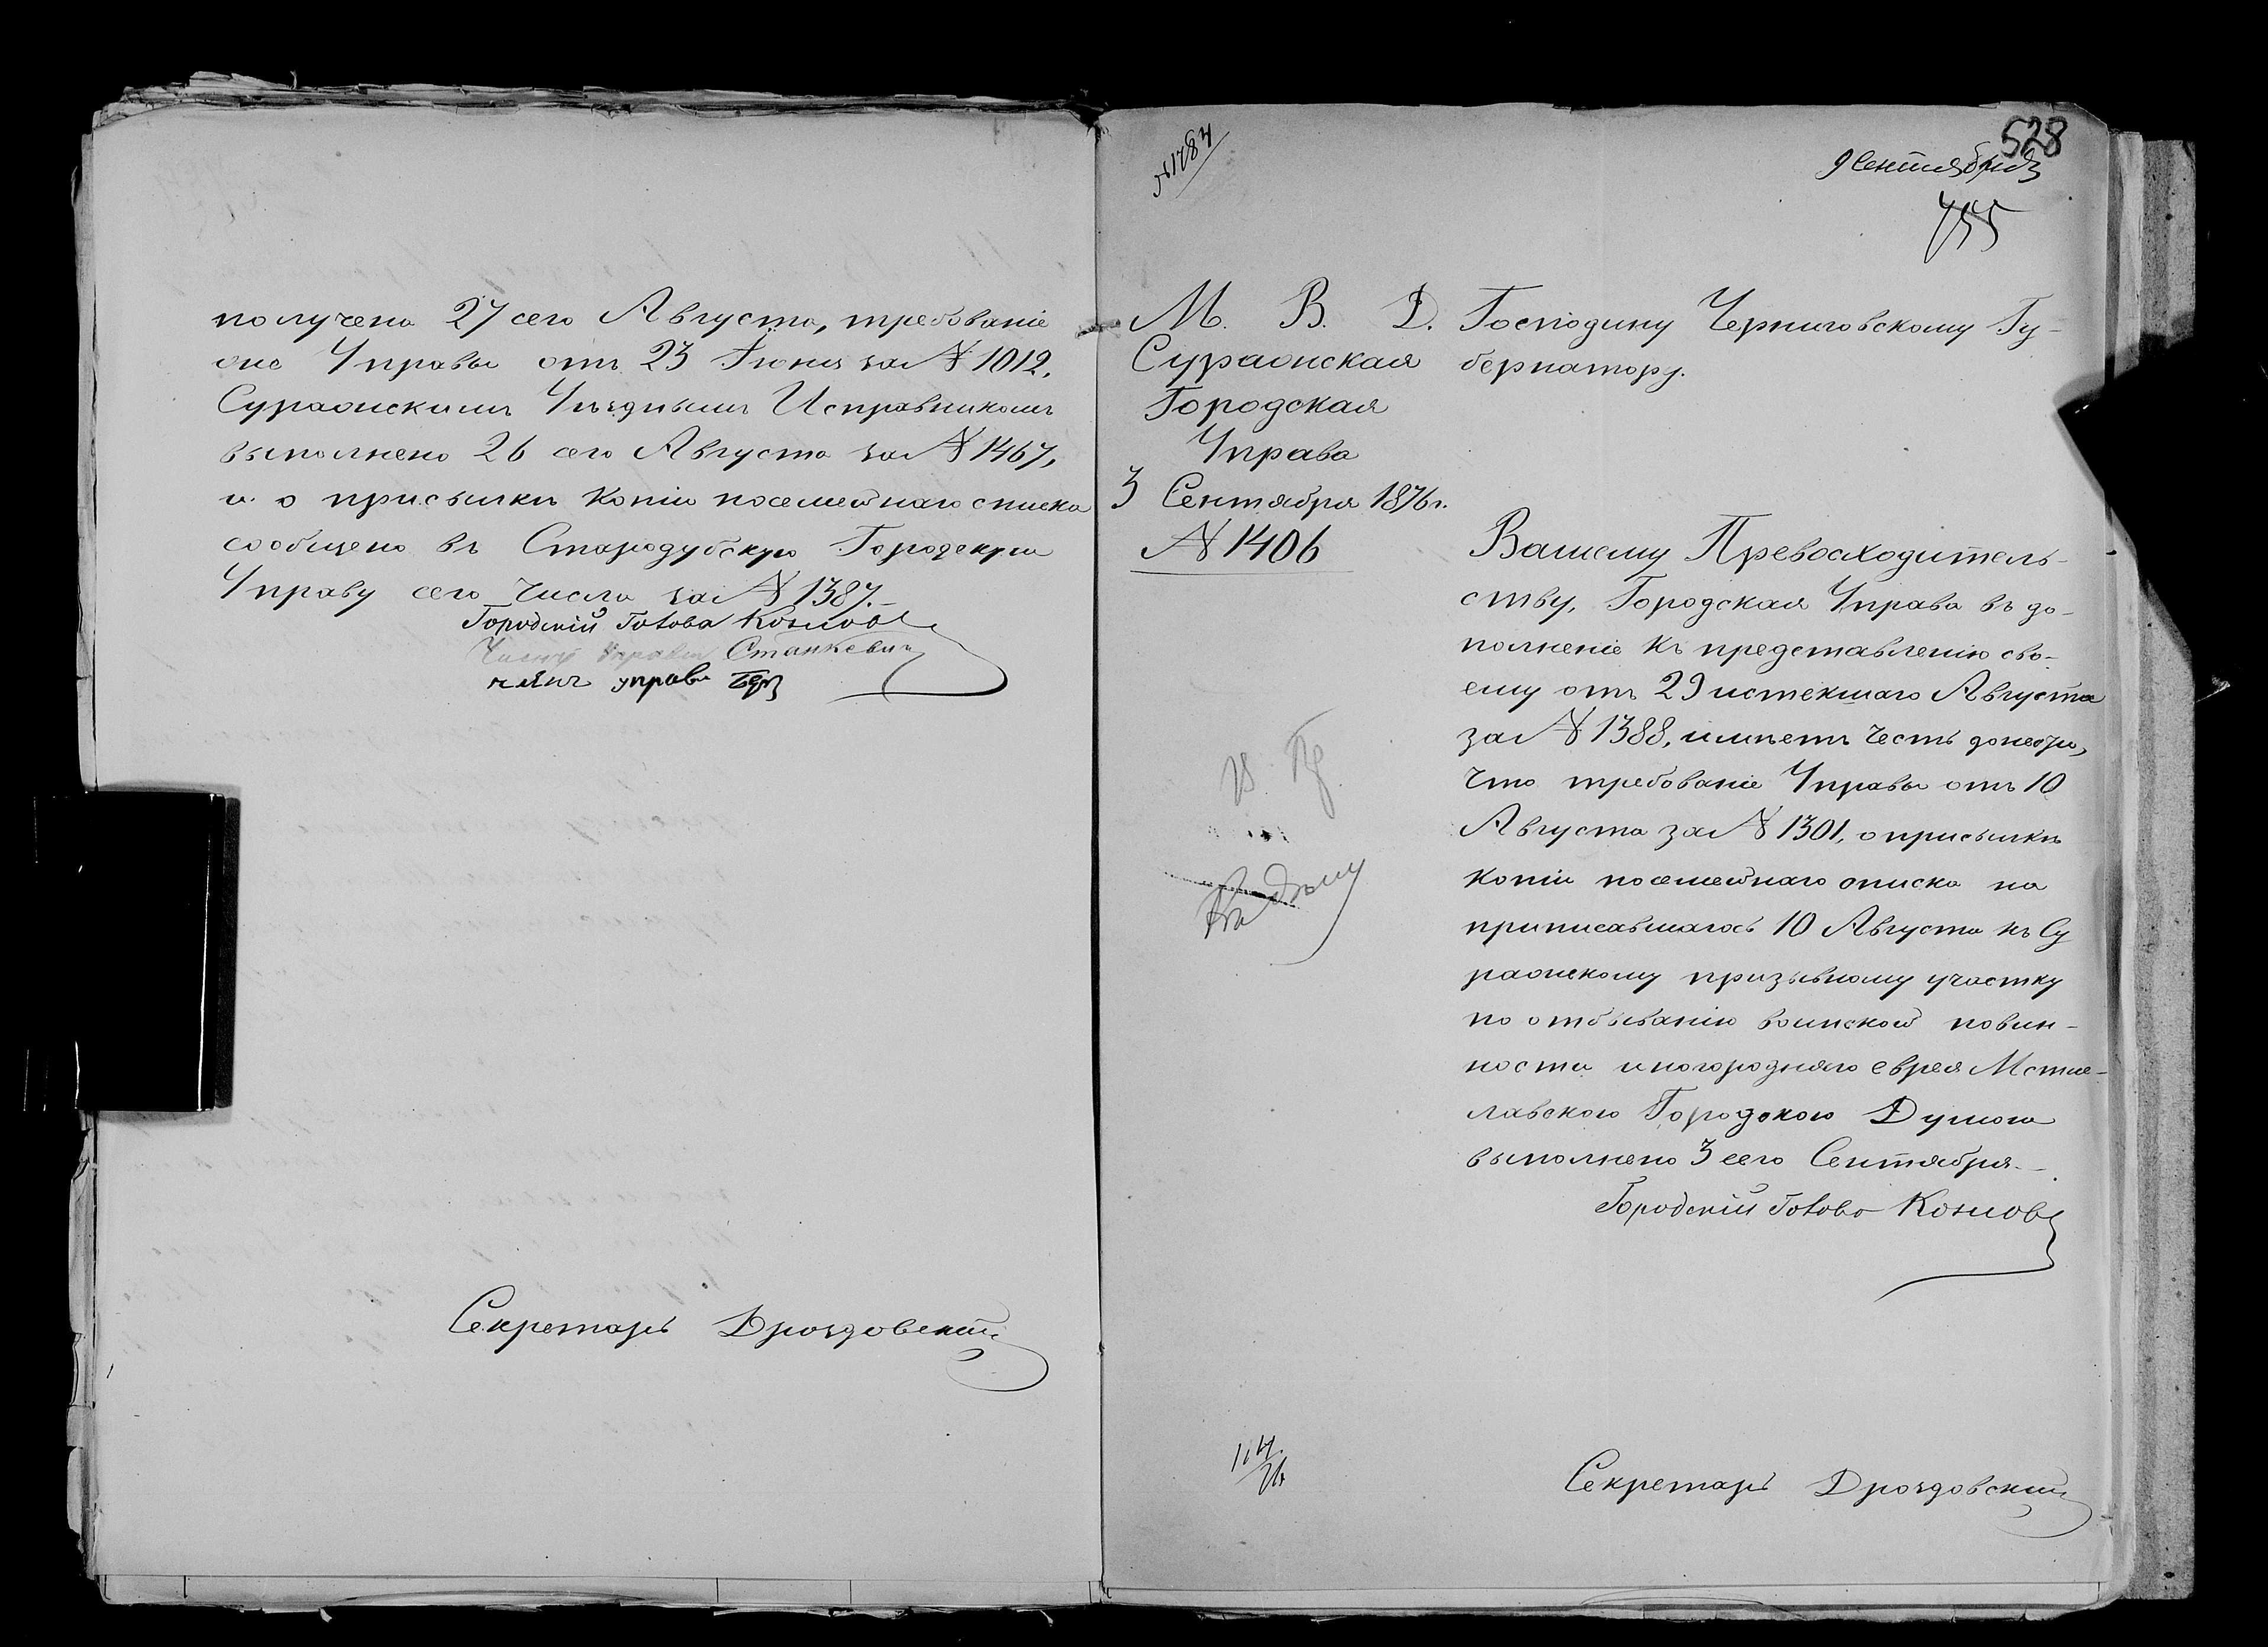 получена 27 сего Августа, требованіе
оне Управы отъ 23 Іюня за № 1012,
Суражскимъ Уѣзднымъ Исправникомъ
выполнено 26 сего Августа за № 1467,
и о присылкѣ копіи посемейнаго списка
сообщено въ Стародубскую Городскую
Управу сего числа за № 1387.
Городскій Голова Козловъ
Членъ Управы Станкевич
членъ управы
Секретарь Дроздовскій
№1783
528
9 Сентября
755
М. В. Д.
Суражская
Городская
Управа
3 Сентября 1876 г.
№ 1406
Господину Черниговскому Гу-
бернатору.
Вашему Превосходитель-
ству, Городская Управа въ до-
полненіе къ представленію сво-
ему отъ 29 истекшаго Августа
за № 1388, имѣетъ честь донести,
что требованіе Управы отъ 10
Августа за № 1301, о присылкѣ
копіи посемейнаго списка на
приписавшагось 10 Августа къ Су
ражскому призывному участку
по отбыванію воинской повин-
ности иногородняго еврея Мстис-
лавскою Городскою Думою
выполнено 3 сего Сентября.
Городскій Голова Козловъ
Секретарь Дроздовскій